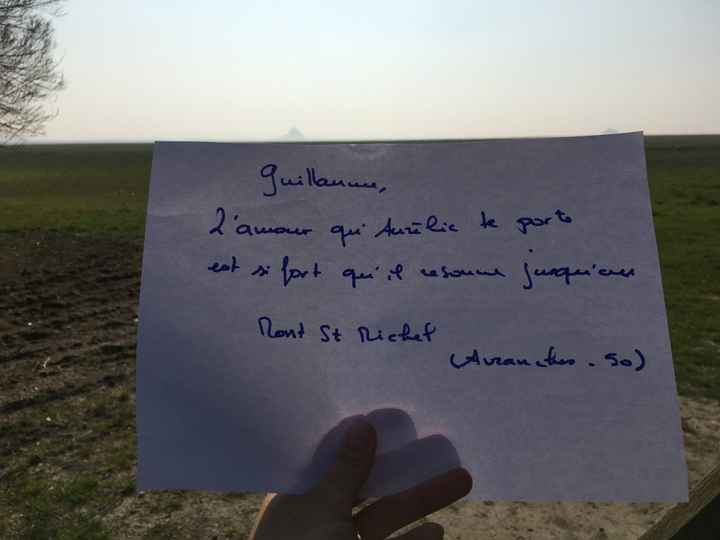 Guillaume,
L'amour qu'Aurélie te porte
est si fort qu'il résonne jusqu'au
Mont St Michel
(Avranches - 50)